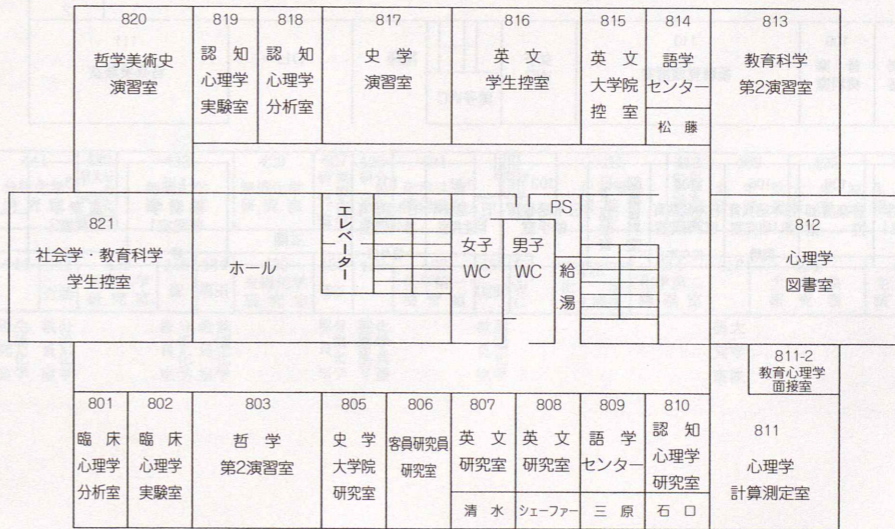 820
哲学美術史
演習室
819
認知
心理学
実験室
818
認知
心理学
分析室
817
史学
演習室
816
英文
学生控室
815
英文
大学院
控室
814
語学
センター
松藤
813
教育科学
第2演習室
821
社会学・教育科学
学生控室
ホール
エレベーター
女子
WC
男子
WC
PS
給湯
812
心理学
図書室
811-2
教育心理学
面接室
801
臨床
心理学
分析室
802
臨床
心理学
実験室
803
哲学
第2演習室
805
史学
大学院
研究室
806
客員研究員
研究室
807
英文
研究室
清水
808
英文
研究室
シェーファー
809
語学
センター
三原
810
認知
心理学
研究室
石口
811
心理学
計算測定室